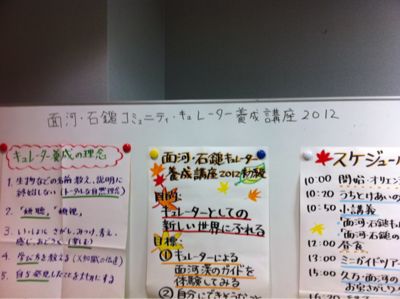 面河・石鎚コミュニティ・キュレーター養成講座2012
キュレーター養成の理念
1. 生物などの名前教え、説明に
終始しない（トータルな自然理念）
2. "傾聴"
3. いっしょに さがし、みつけ、考え、
感じ、おどろく
4. 学び方を教える
5. 自ら発見したことを大切にする
面河・石鎚キュレーター
養成講座2012初級
目的:
キュレーターとしての
新しい世界にふれる
目標:
①キュレーターによる
面河渓のガイドを
体験してみる
②自分にできそうな
スケジュール
10:00 開始・オリエン
10:20 うちとけあいの
10:50 小講義
「面河・石鎚も
「面河・石鎚の
12:00 昼食
13:00 ミニガイドツアー
15:00 久万・面河の
お宝さがし